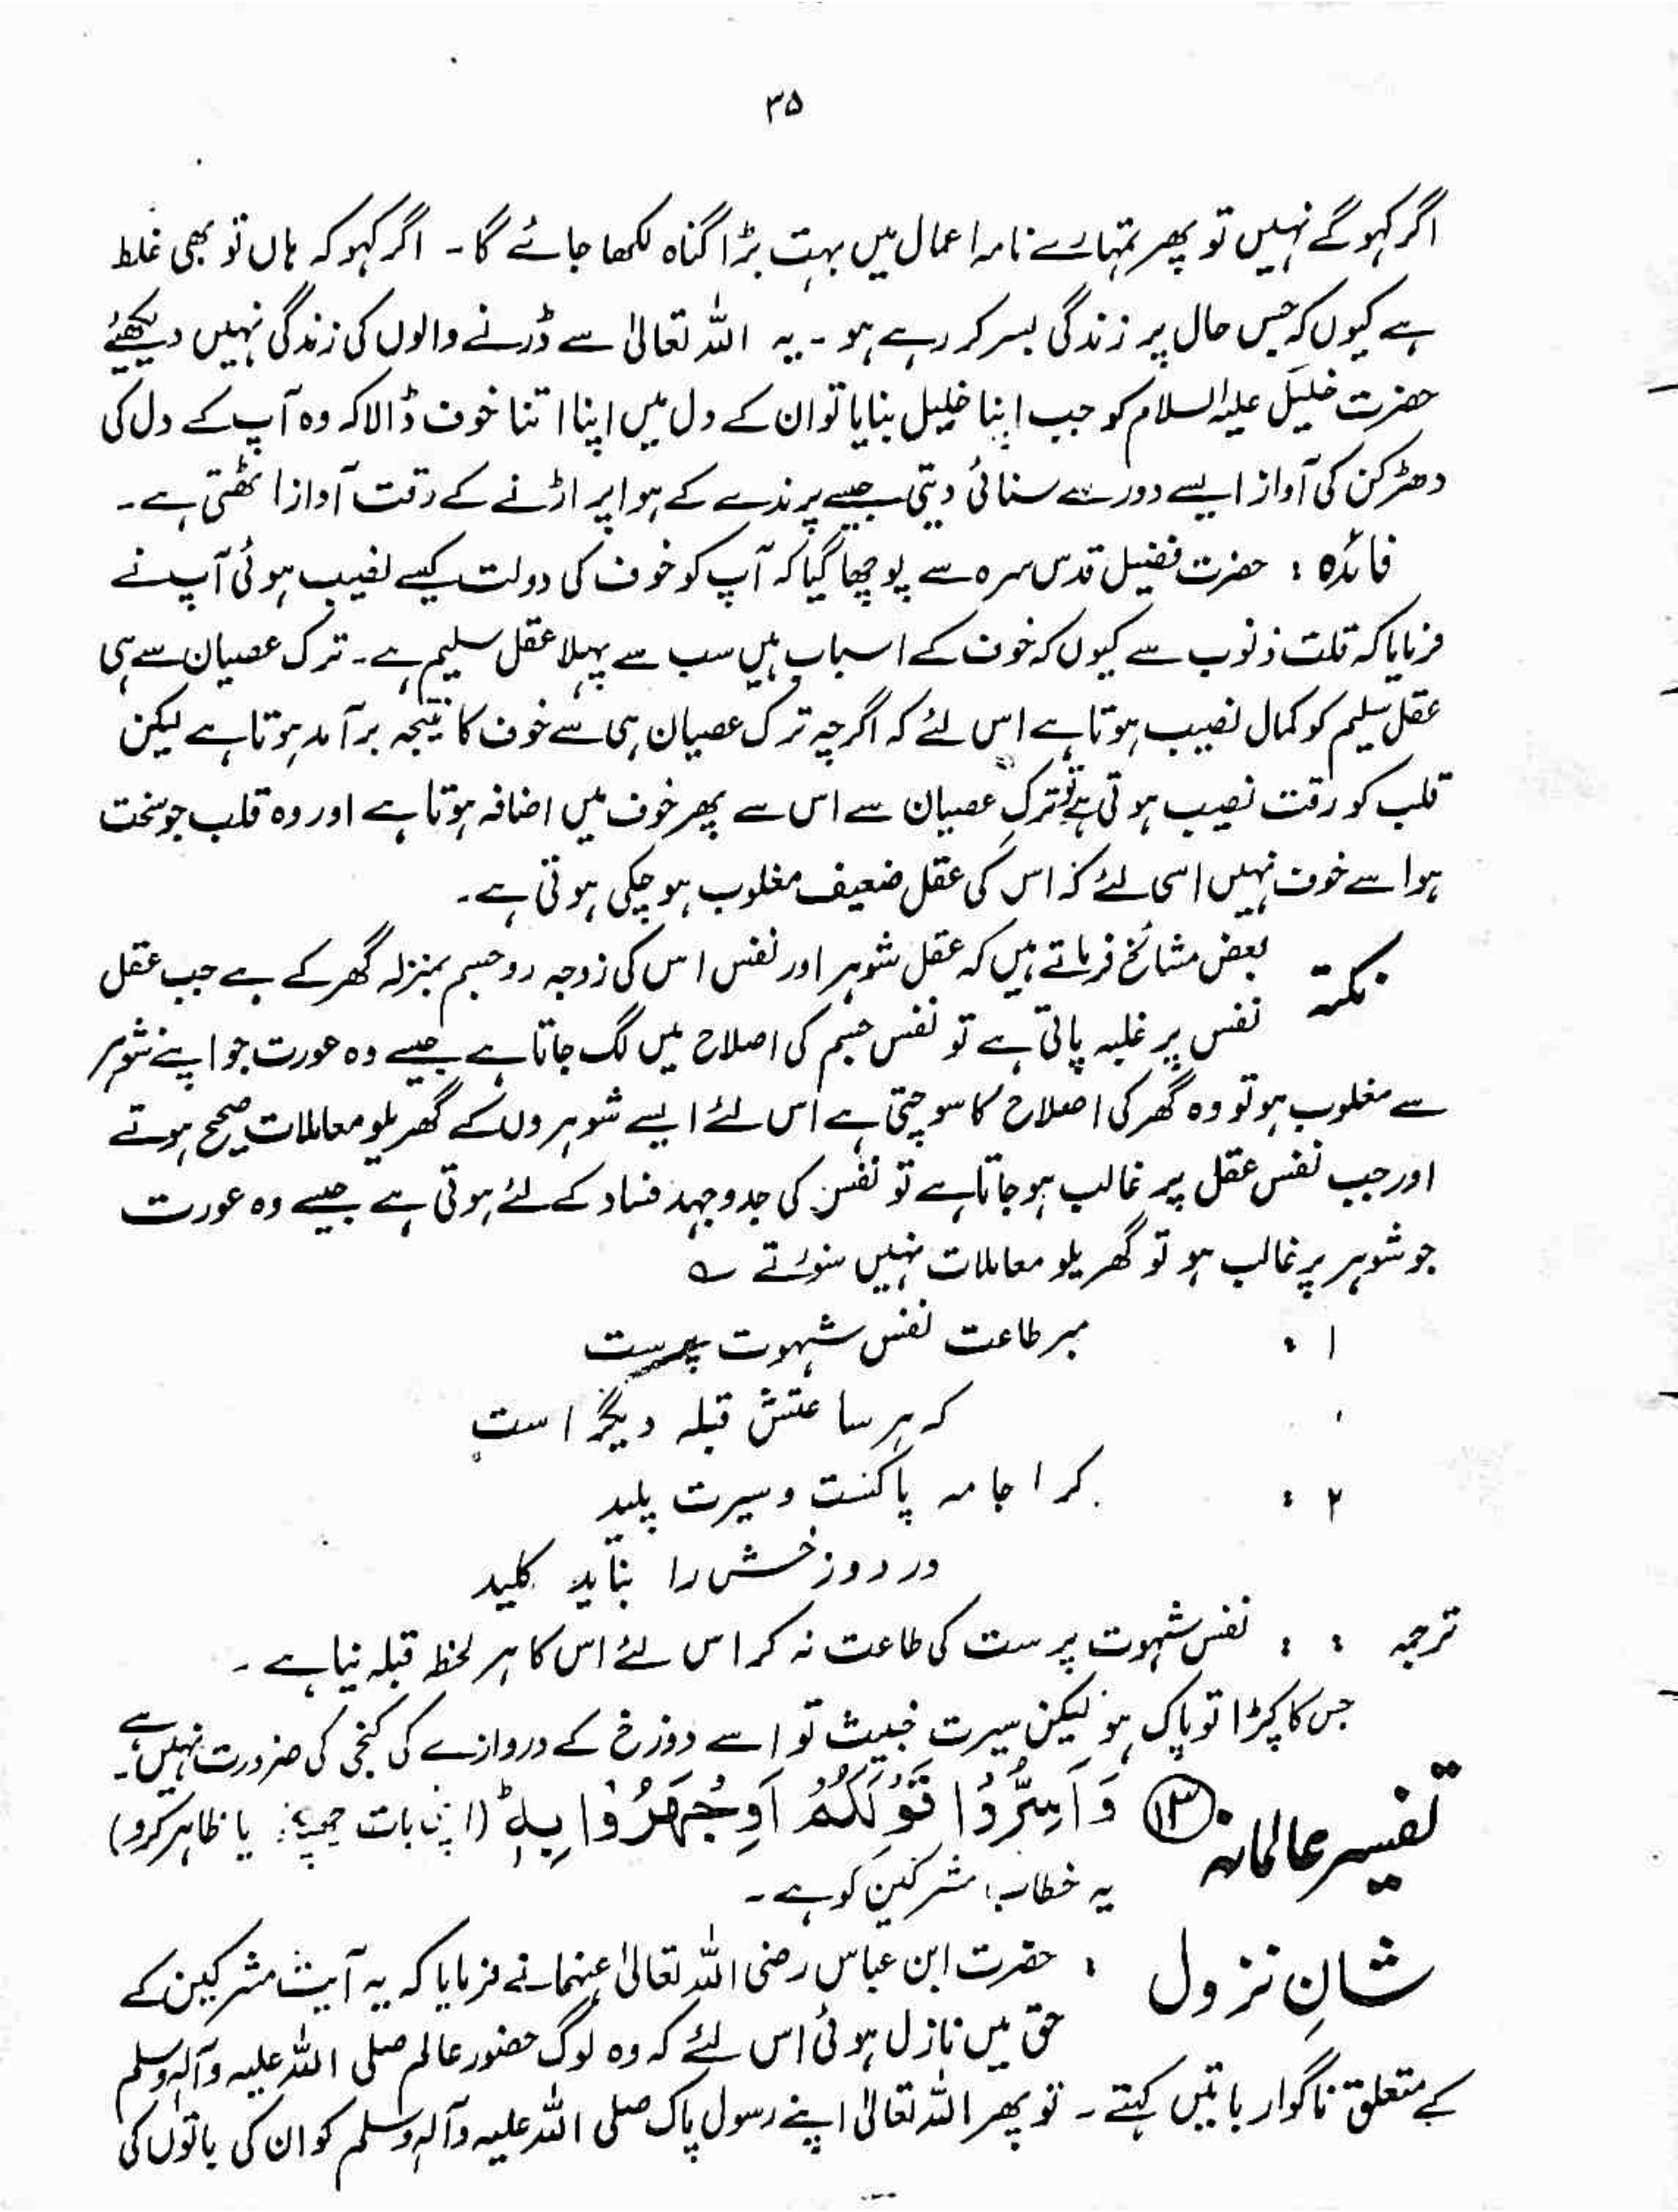 ۳۵
اگر کہو گے نہیں تو پھر تمہارے نامہ اعمال میں بہت بڑا گناہ لکھا جائے گا۔ اگر کہو کہ ہاں تو بھی غلط
ہے کیوں کہ جس حال پر زندگی بسر کر رہے ہو۔ یہ اللہ تعالیٰ سے ڈرنے والوں کی زندگی نہیں دیکھئے
حضرت خلیل علیہ السلام کو جب اپنا خلیل بنایا تو ان کے دل میں اپنا اتنا خوف ڈالا کہ وہ آپ کے دل کی
دھڑکن کی آواز ایسے دور سے سنائی دیتی جیسے پرندے کے ہوا پر اڑنے کے وقت آواز اٹھتی ہے۔
فائدہ : حضرت فضیل قدس سرہ سے پوچھا گیا کہ آپ کو خوف کی دولت کیسے نصیب ہوئی آپ نے
فرمایا کہ قلت ذنوب سے کیوں کہ خوف کے اسباب میں سب سے پہلا عقل سلیم ہے۔ ترک عصیان سے ہی
عقل سلیم کو کمال نصیب ہوتا ہے اس لئے کہ اگرچہ ترک عصیان ہی سے خوف کا نتیجہ برآمد ہوتا ہے لیکن
قلب کو رقت نصیب ہوتی ہے تو ترکِ عصیان سے اس سے پھر خوف میں اضافہ ہوتا ہے اور وہ قلب جو سخت
ہوا سے خوف نہیں اسی لئے کہ اس کی عقل ضعیف مغلوب ہو چکی ہوتی ہے۔
نکتہ بعض مشائخ فرماتے ہیں کہ عقل شوہر اور نفس اس کی زوجہ روجسم بمنزلہ گھر کے ہے جب عقل
نفس پر غلبہ پاتی ہے تو نفس جسم کی اصلاح میں لگ جاتا ہے جیسے وہ عورت جو اپنے شوہر
سے مغلوب ہو تو وہ گھر کی اصلاح کا سوچتی ہے اس لئے ایسے شوہروں کے گھریلو معاملات صحیح ہوتے
اور جب نفس عقل پر غالب ہو جاتا ہے تو نفس کی جدوجہد فساد کے لئے ہوتی ہے جیسے وہ عورت
جو شوہر پر غالب ہو تو گھریلو معاملات نہیں سنورتے ؎
۱ : مبر طاعت نفس شہوت پرست
کہ ہر ساعتش قبلہ دیگر است
۲ : کرا جامہ پاکست و سیرت پلید
در دوزخش را بناید کلید
ترجمہ : : نفس شہوت پرست کی طاعت نہ کر اس لئے اس کا ہر لحظ قبلہ نیا ہے۔
جس کا کپڑا تو پاک ہو لیکن سیرت خبیث تو اسے دوزخ کے دروازے کی کنجی کی ضرورت نہیں ہے۔
تفسیر عالمانہ ۱۳ وَاَسِرُّوْا قَوْلَكُمْ اَوِجْهَرُوْا بِهٖ ط (اپنی بات چھپاؤ یا ظاہر کرو)
یہ خطاب مشرکین کو ہے۔
شانِ نزول : حضرت ابن عباس رضی اللہ تعالیٰ عنہما نے فرمایا کہ یہ آیت مشرکین کے
حق میں نازل ہوئی اس لئے کہ وہ لوگ حضور عالم صلی اللہ علیہ وآلہ وسلم
کے متعلق ناگوار باتیں کہتے۔ تو پھر اللہ تعالیٰ اپنے رسول پاک صلی اللہ علیہ وآلہ وسلم کو ان کی باتوں کی